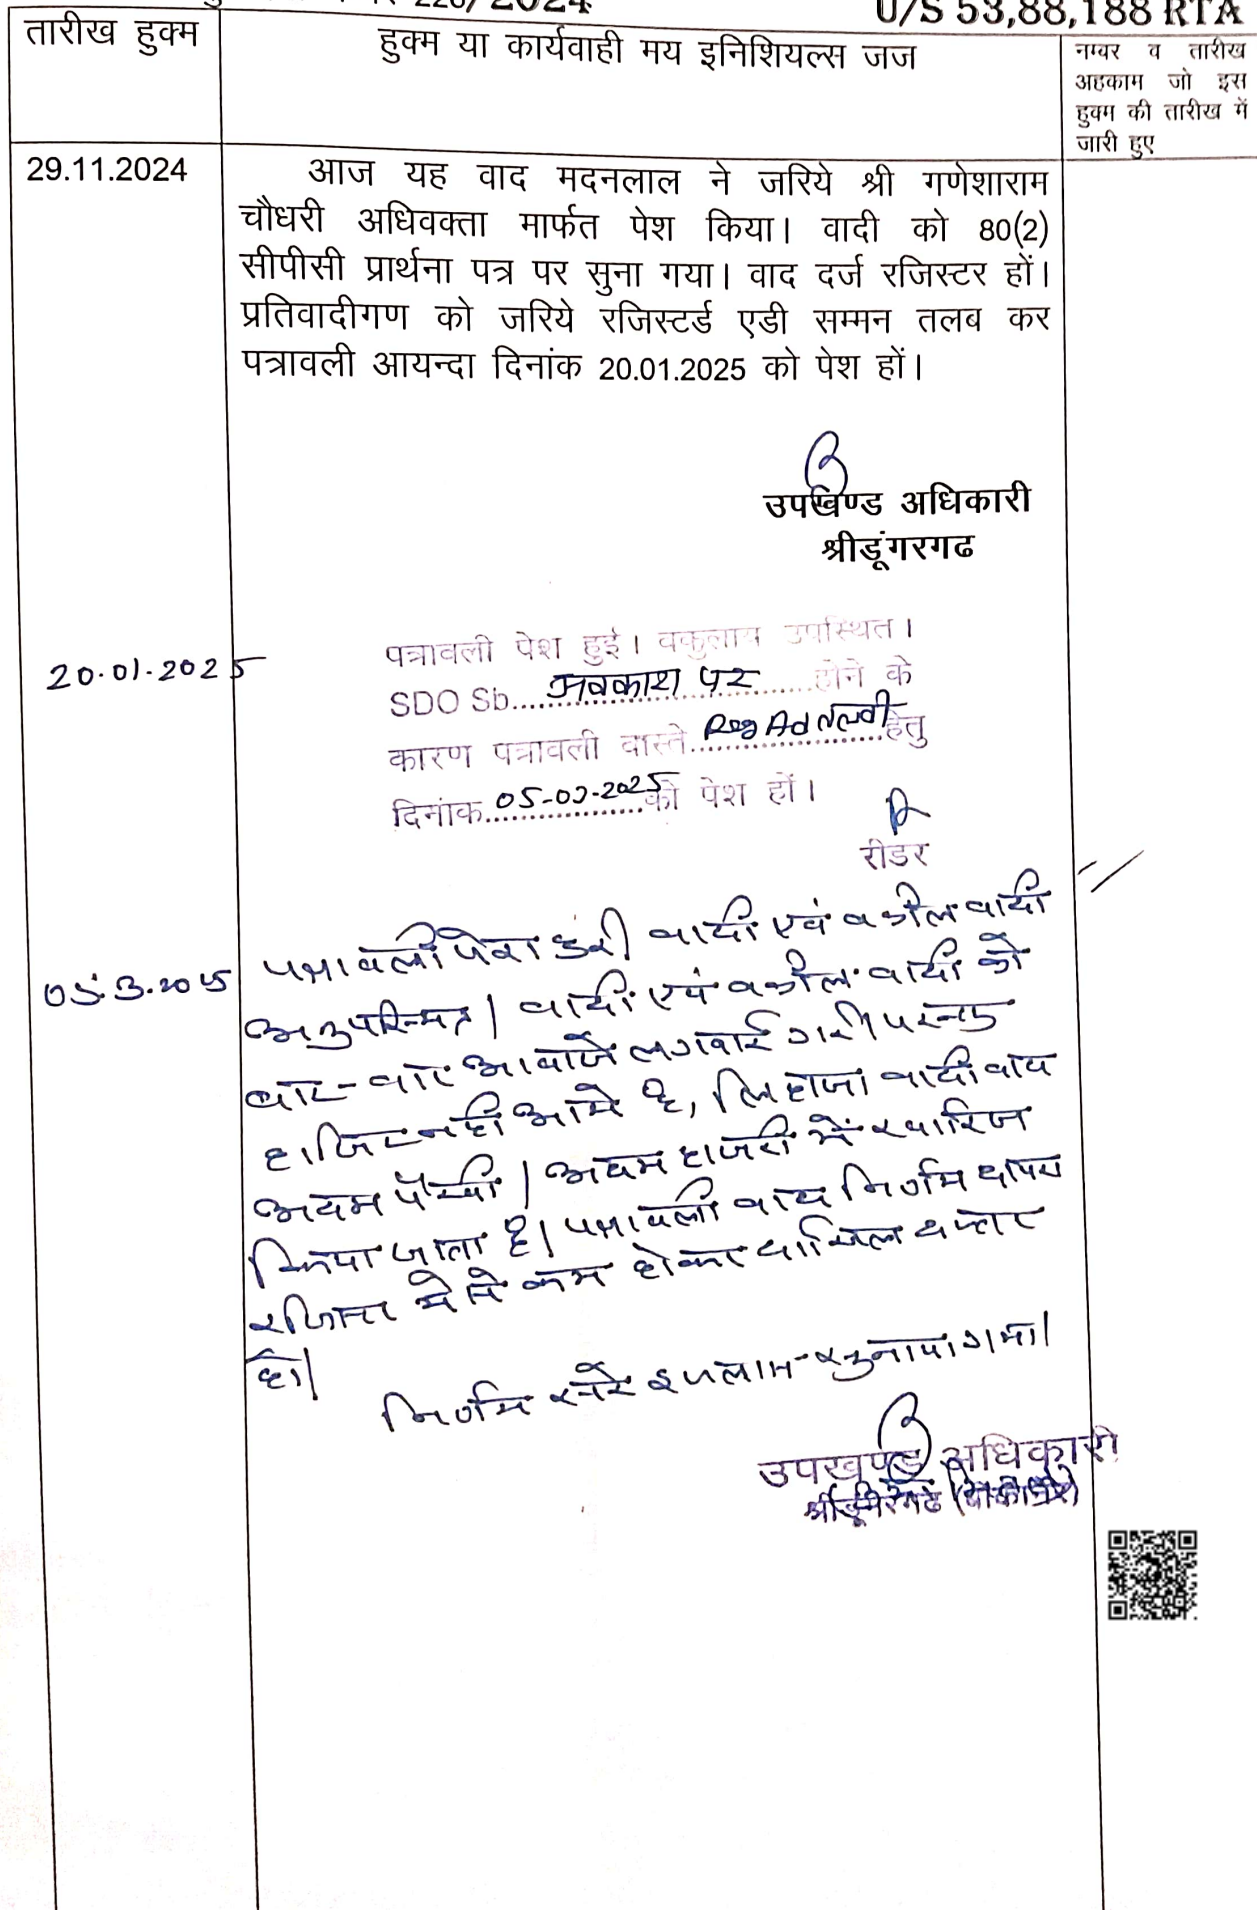 226/2024
U/S 53,88,188 RTA
तारीख हुक्म
हुक्म या कार्यवाही मय इनिशियल्स जज
नम्बर व तारीख
अहकाम जो इस
हुक्म की तारीख में
जारी हुए
29.11.2024
आज यह वाद मदनलाल ने जरिये श्री गणेशाराम
चौधरी अधिवक्ता मार्फत पेश किया। वादी को 80(2)
सीपीसी प्रार्थना पत्र पर सुना गया। वाद दर्ज रजिस्टर हों।
प्रतिवादीगण को जरिये रजिस्टर्ड एडी सम्मन तलब कर
पत्रावली आयन्दा दिनांक 20.01.2025 को पेश हों।
उपखण्ड अधिकारी
श्रीडूंगरगढ
20.01.2025
पत्रावली पेश हुई। वकुलाय उपस्थित।
SDO Sb....अवकाश पर....होने के
कारण पत्रावली वास्ते Reg Ad तलबी हेतु
दिनांक 05-03-2025 को पेश हों।
रीडर
05.3.2025
पत्रावली पेश हुई। वादी एवं वकील वादी
अनुपस्थित। वादी एवं वकील वादी को
बार-बार आवाजें लगवाई गयी परन्तु
हाजिर नहीं आये है, लिहाजा वादी वाद
अदम पैरवी। अदम हाजरी में खारिज
किया जाता है। पत्रावली बाद निर्णय दायरा
रजिस्टर से कम होकर दाखिल दफ्तर
हो।
निर्णय सरे इजलास सुनाया गया।
उपखण्ड अधिकारी
श्रीडूंगरगढ (बीकानेर)